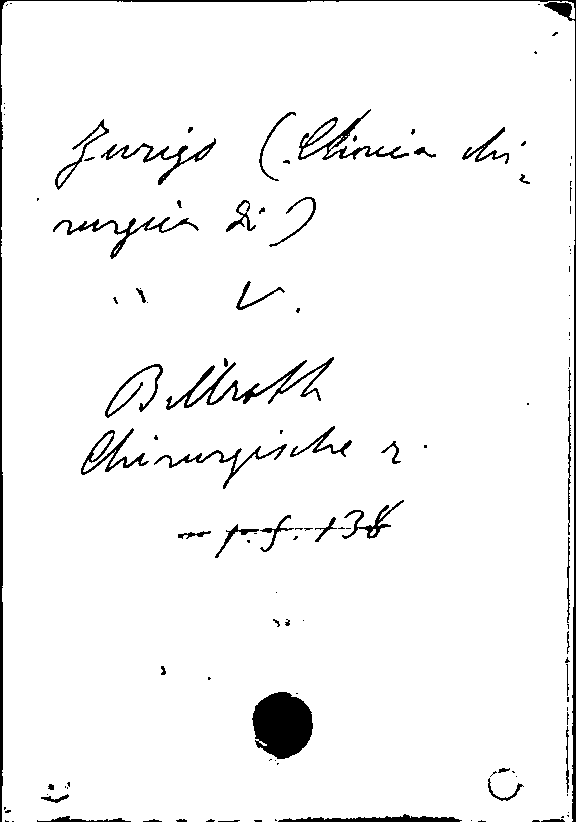 Zurigo (Clinica chi-
rurgica di)
" V.
Billroth
Chirurgische r.
— p. f. 138